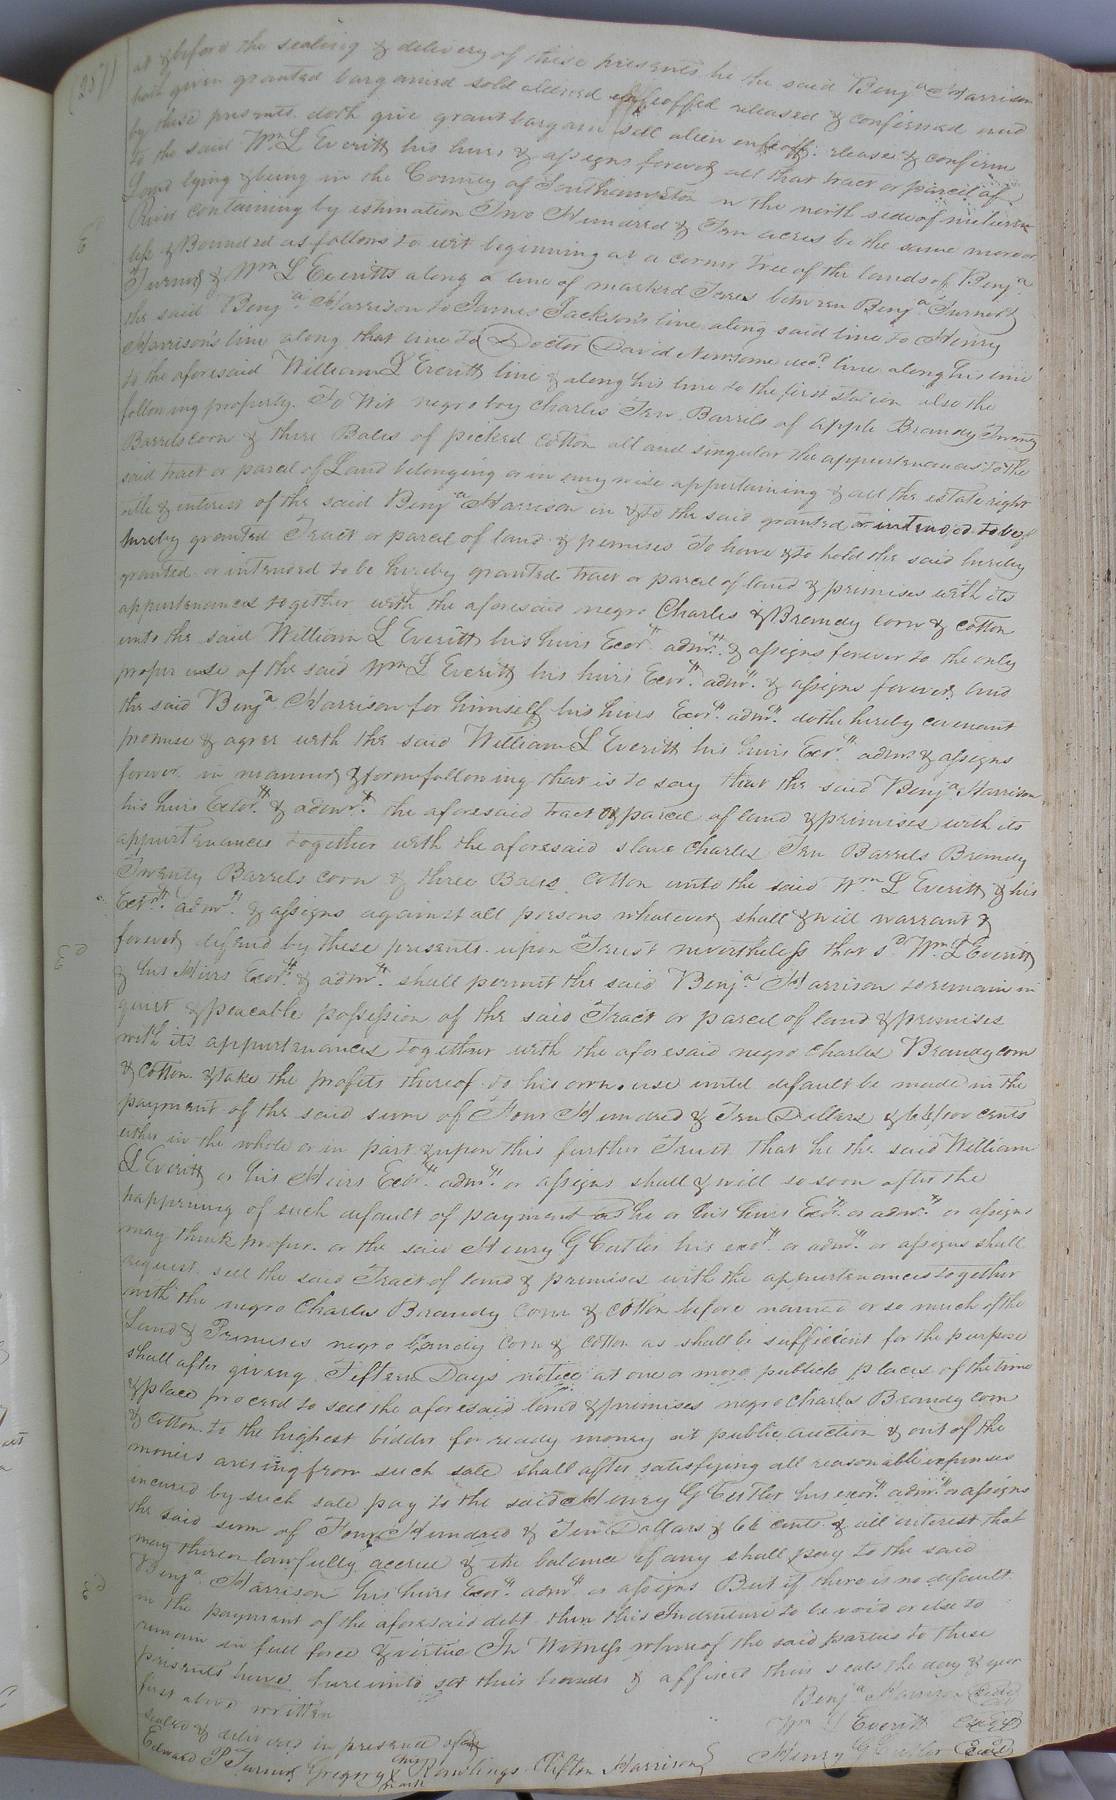 (257)
at & before the sealing & delivery of these presents he the said Benja Harrison
hath given granted bargained sold aliened enfeoffed released & confirmed and
by these presents doth give grant bargain sell alien enfeoff release & confirm
to the said Wm L Everitt his heirs & assigns forever all that tract or parcel of
Land lying & being in the County of Southampton on the north side of
River containing by estimation Two Hundred & Ten acres be the same more or
less & Bounded as follows to wit beginning at a corner Tree of the lands of Benja
Turner & Wm L Everitts along a line of marked Trees between Benja Turner &
the said Benja Harrison to James Jackson's line along said line to Henry
Harrison's line along that line to Doctor David Newsome decd line along his line
to the aforesaid William L Everitt line & along his line to the first station also the
following property. To Wit negro boy Charles Ten Barrels of apple Brandy Twenty
Barrels corn & three Bales of picked cotton all and singular the appurtenances to the
said tract or parcel of Land belonging or in any wise appertaining & all the estate right
title & interest of the said Benja Harrison in & to the said granted or intended to be
hereby granted Tract or parcel of land & premises To have & to hold the said hereby
granted or intended to be hereby granted tract or parcel of land & premises with its
appurtenances together with the aforesaid negro Charles & Brandy corn & cotton
unto the said William L Everitt his heirs Exors admrs & assigns forever to the only
proper use of the said Wm L Everitt his heirs Exors admrs & assigns forever and
the said Benja Harrison for himself his heirs Exors admrs doth hereby covenant
promise & agree with the said William L Everitt his heirs Exors admrs & assigns
forever in manner & form following that is to say that the said Benja Harrison
his heirs Exors & admrs the aforesaid tract or parcel of land & premises with its
appurtenances together with the aforesaid slave Charles Ten Barrels Brandy
Twenty Barrels corn & three Bales cotton unto the said Wm L Everitt & his
Exors admrs & assigns against all persons whatever shall & will warrant &
forever defend by these presents upon Trust nevertheless that sd Wm L Everitt
& his Heirs Exors & admrs shall permit the said Benja Harrison to remain in
quiet & peacable possession of the said Tract or parcel of land & premises
with its appurtenances together with the aforesaid negro Charles Brandy corn
& cotton & take the profits thereof to his own use until default be made in the
payment of the said sum of Four Hundred & Ten Dollars & 66/100 cents
either in the whole or in part & upon this further Trust that he the said William
L Everitt or his Heirs Exors admrs or assigns shall & will so soon after the
happening of such default of payment as he or his heirs Exors or admrs or assigns
may think proper or the said Henry G Cutler his exors or admrs or assigns shall
request sell the said Tract of land & premises with the appurtenances together
with the negro Charles Brandy Corn & cotton before named or so much of the
Land & Premises negro Brandy Corn & cotton as shall be sufficient for the purpose
shall after giving Fifteen Days notice at one or more publick places of the time
& place proceed to sell the aforesaid land & premises negro Charles Brandy corn
& cotton to the highest bidder for ready money at public auction & out of the
monies aresing from such sale shall after satisfying all reasonable expenses
incured by such sale pay to the said Henry G Cutler his exors admrs or assigns
the said sum of Four Hundred & Ten Dollars & 66 cents & all interest that
may thereon lawfully accrue & the balance if any shall pay to the said
Benja Harrison his heirs Exors admrs or assigns But if there is no default
in the payment of the aforesaid debt then this Indenture to be void or else to
remain in full force & virtue In Witness whereof the said parties to these
presents have hereunto set their hands & affixed their seals the day & year
first above written
Benja Harrison Seal
sealed & delivered in presence of
Wm L Everitt Seal
Edward P Turner Gregory his X mark Rawlings Clifton Harrison
Henry G Cutler Seal